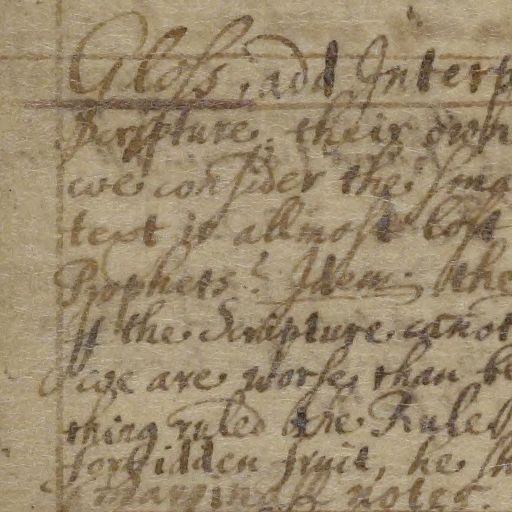 Gloss, add Interp
Scripture, their own
we consider the sma
text is allmost lost
Prophets? Idem. the
If the Scripture canot
we are worse, than be
thing ruled the Rule
forbidden fruit, he sh
marginall notes.